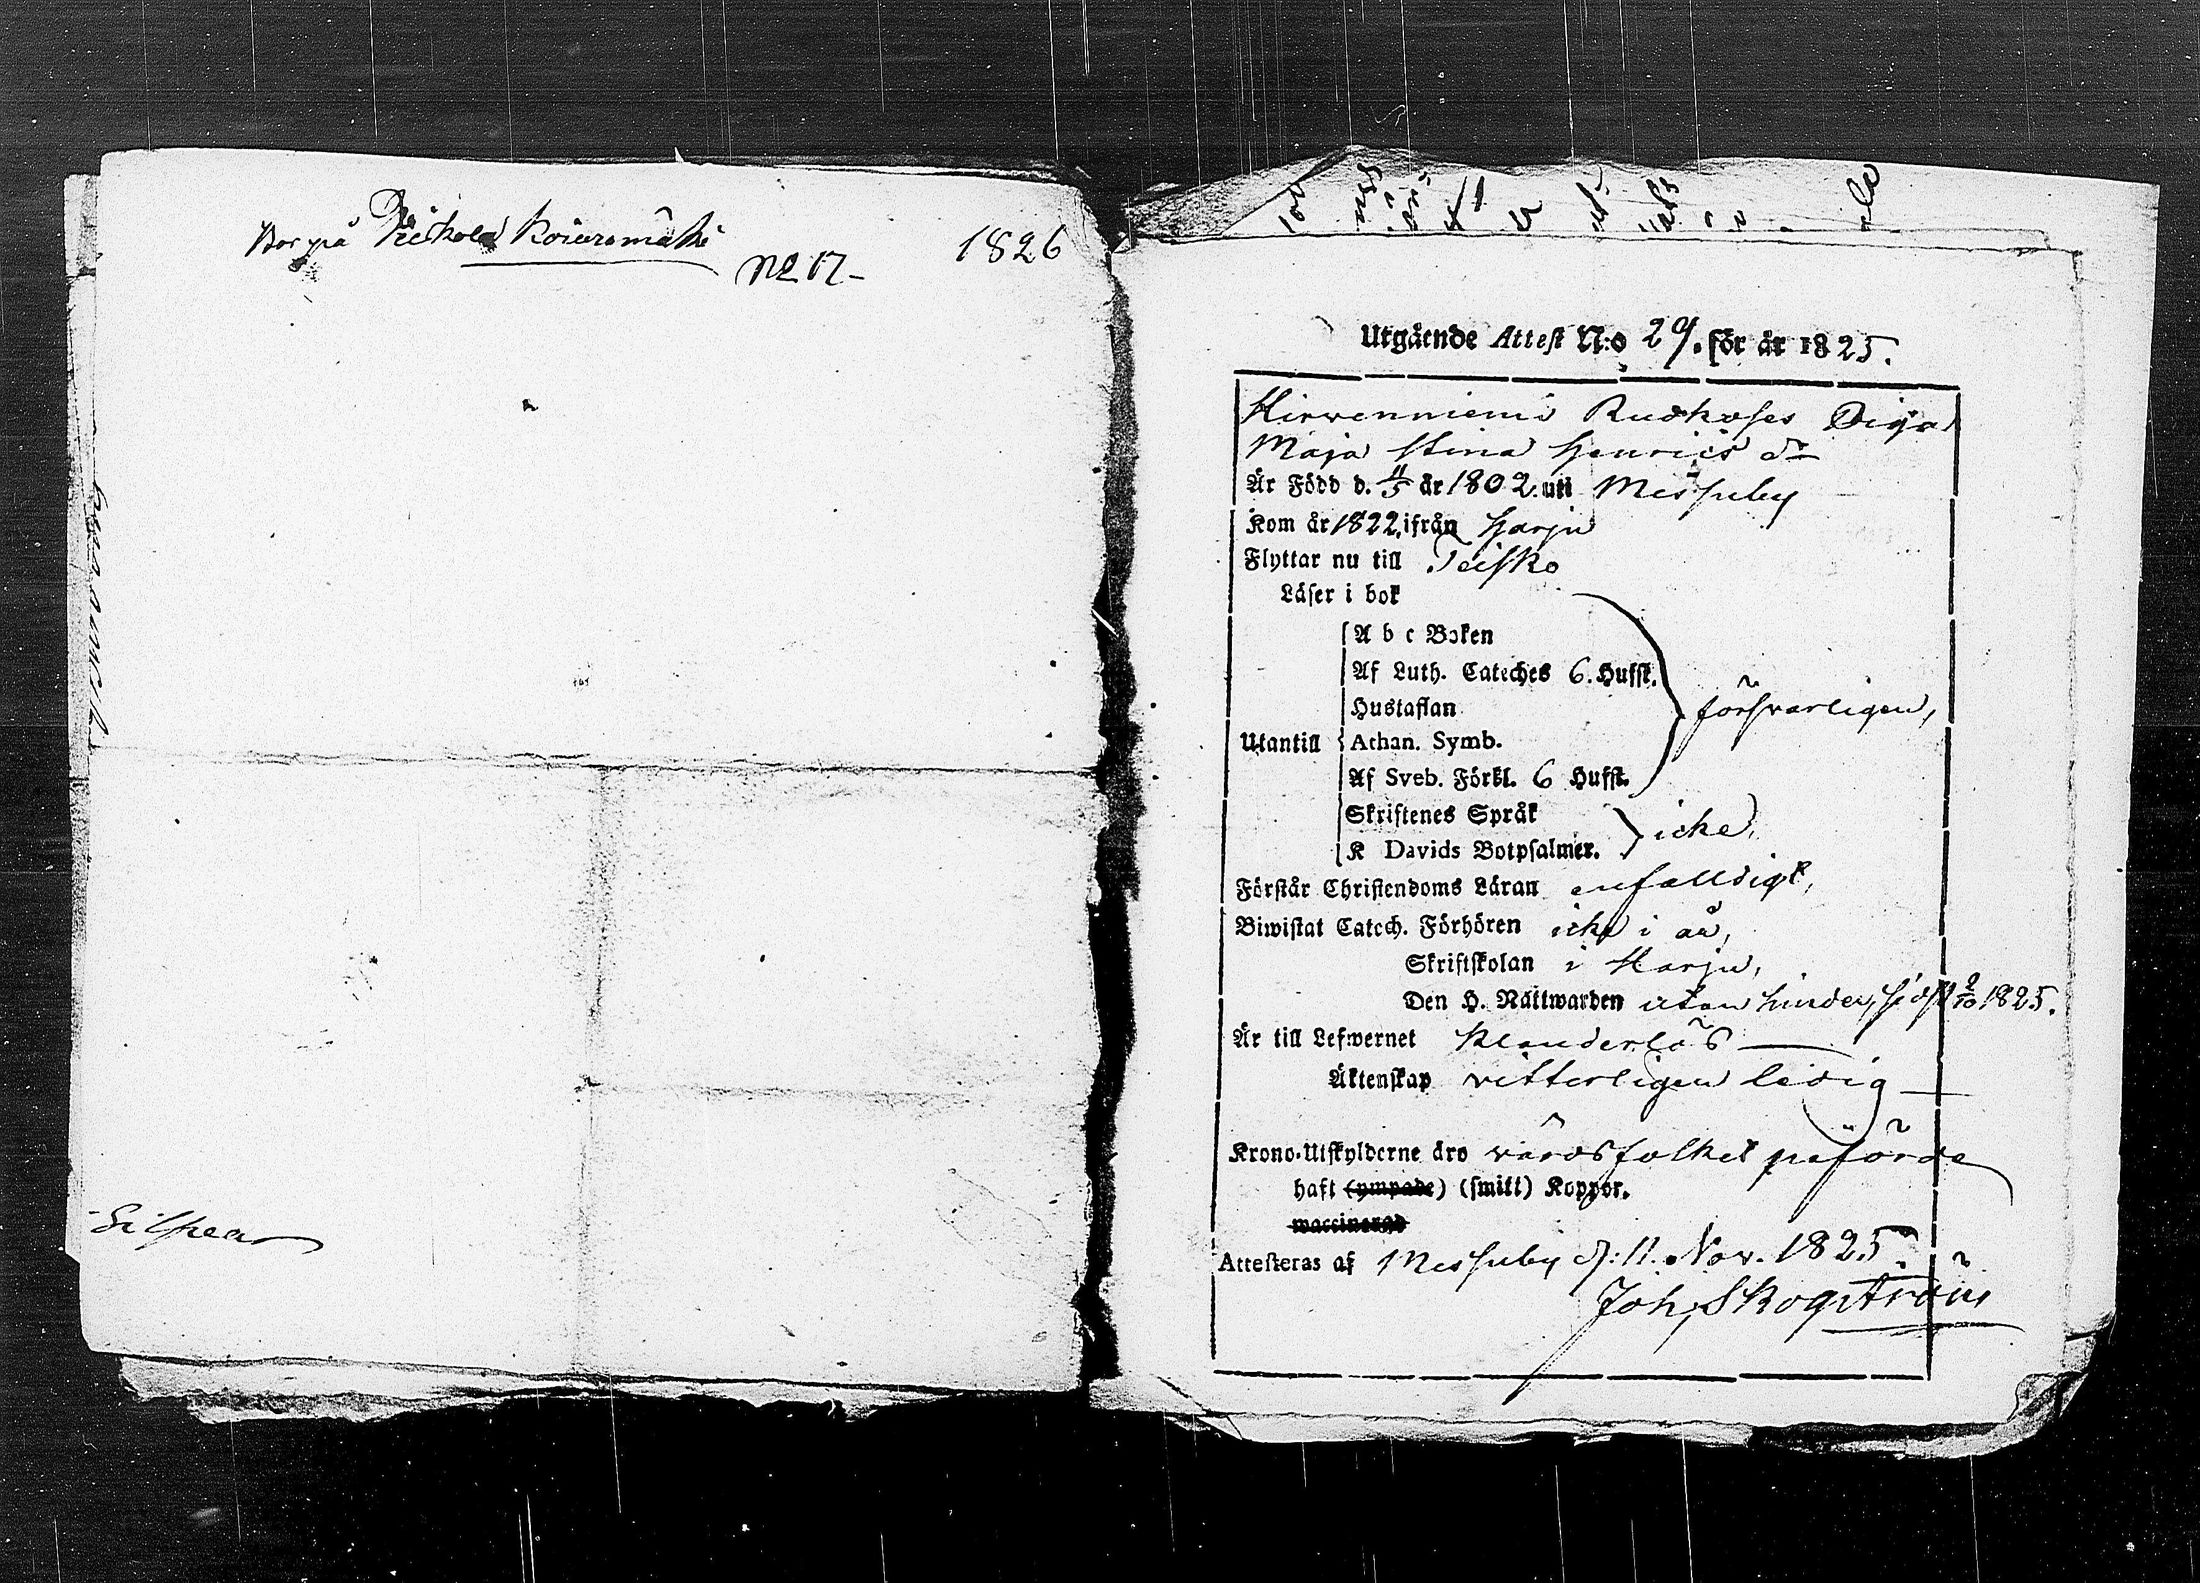 Bor på Koiuromäki
N:o 17 1826
Utgående Attest N:o 29. för år 1825.
Hirvenniemi Rudhofes Piga
Maja Stina Henrics dr
Är Född d. 11/5 år 1802. uti Messuby
Kom år 1822. ifrån Harju
Flyttar nu till Teisko
Läser i bok
A b c Boken
Af Luth. Cateches 6. Hufst.
Hustaflan försvarligen,
Utantill Athan. Symb.
Af Sveb. Förkl. 6 Hufst.
Skriftenes Språk
icke,
K Davids Botpsalmer.
Förstår Christendoms Läran enfalldigt,
Biwistat Catech. Förhören icke i år,
Skriftskolan i Harju,
Den H. Nattwarden utan hinder, sidst 2/10 1825.
Är till Lefwernet klanderlös
Äktenskap vitterligen ledig
Krono-Utskylderne äro värdsfolket påförde
haft (ympade) (smitt) Koppor.
waccinerad
Attesteras af Messuby d: 11. Nov. 1825.
Joh, Skogström